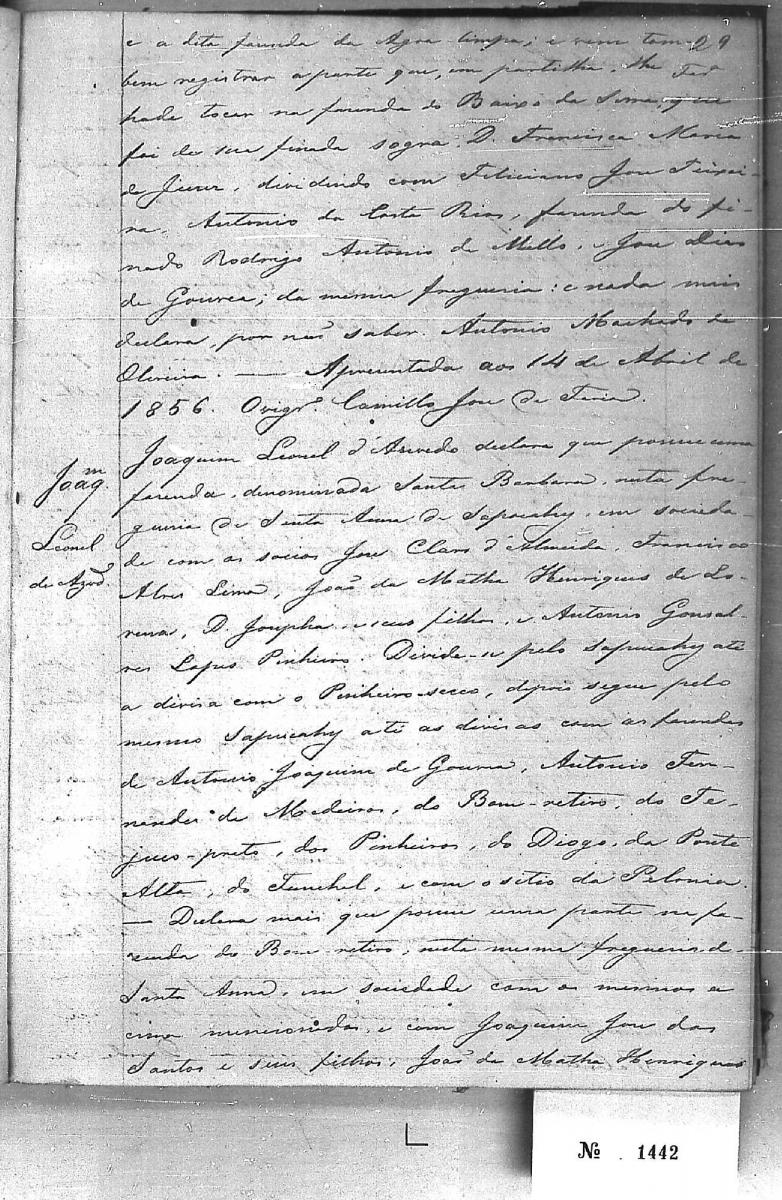 e a dita fazenda da Agoa limpa; e vem tam- 29
bem registrar a parte que, em partilha, lhe
pode tocar na fazenda do Baixo da Serra, que
foi de sua finada sogra D. Francisca Maria
de Jesus, dividindo com Feliciano Jose Teixei-
ra, Antonio da Costa Rios, fazenda do fi-
nado Rodrigo Antonio de Mello, e Jose Dias
de Gouvea; da mesma freguesia: e nada mais
declara, por não saber. Antonio Machado de
Oliveira. — Apresentada aos 14 de Abril de
1856. O vigr.º Camillo Jose de Faria.
Joaq.m
Leonel
de Azvdº
Joaquim Leonel d'Azevedo declara que possue uma
fazenda, denominada Santa Barbara, nesta fre-
guesia de Santa Anna de Sapucahy, em socieda-
de com os socios Jose Claro d'Almeida, Francisco
Alves Lima, João da Matha Henriques de Lo-
rena, D. Josepha, e seus filhos, e Antonio Gonsal-
ves Lopes Pinheiro. Divide-se pelo Sapucahy até
a divisa com o Pinheiro-secco, depois segue pelo
mesmo Sapucahy até as divisas com as fazendas
de Antonio Joaquim de Gouvea, Antonio Fer-
nandes de Medeiros, do Bom-retiro, do Te-
juco-preto, dos Pinheiros, do Diogo, da Ponte
Alta, do Funchal, e com o sitio da
— Declara mais que possue uma parte na fa-
zenda do Bom-retiro, nesta mesma freguesia de
Santa Anna, em sociedade com os mesmos a
cima mencionados, e com Joaquim Jose dos
Santos e seus filhos, João da Matha Henriques
Nº 1442